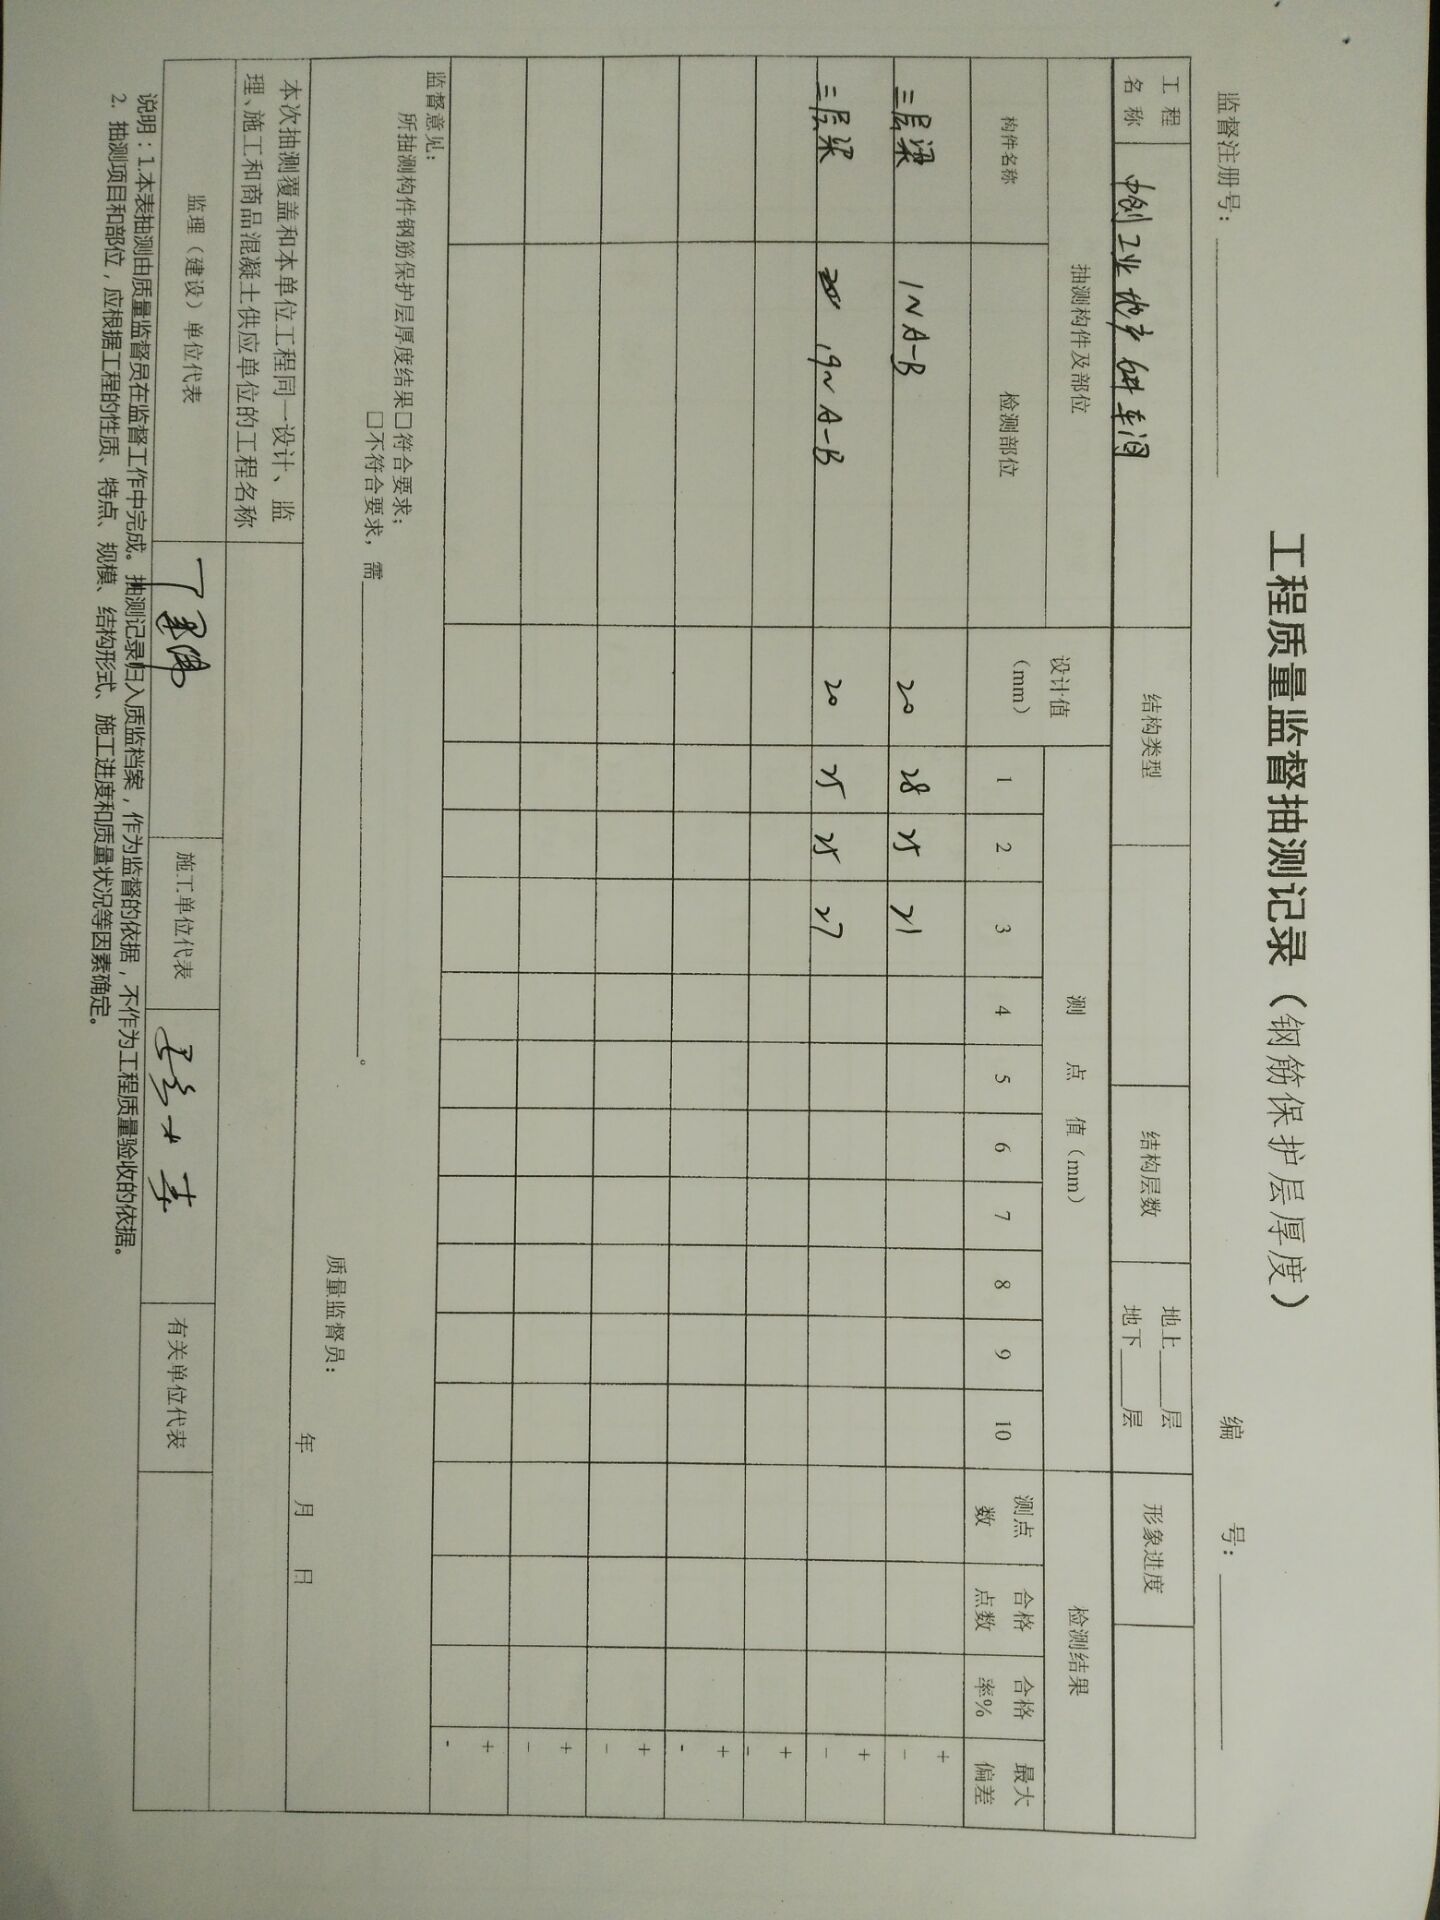 工程质量监督抽测记录（钢筋保护层厚度）
监督注册号： 编 号：
工程名称 中创工业地产 6# 车间 结构类型 结构层数 地上 层 地下 层 形象进度
抽测构件及部位 设计值（mm） 测 点 值（mm） 检测结果
构件名称 检测部位 1 2 3 4 5 6 7 8 9 10 测点数 合格点数 合格率% 最大偏差
三层梁 1~A-B 20 28 25 21 + -
三层梁 19~A-B 20 25 25 27 + -
+ -
+ -
+ -
+ -
+ -
监督意见：
所抽测构件钢筋保护层厚度结果□符合要求；
□不符合要求，需 。
质量监督员：
年 月 日
本次抽测覆盖和本单位工程同一设计、监
理、施工和商品混凝土供应单位的工程名称
监理（建设）单位代表 施工单位代表 有关单位代表
说明：1.本表抽测由质量监督员在监督工作中完成。抽测记录归入质监档案，作为监督的依据，不作为工程质量验收的依据。
2. 抽测项目和部位，应根据工程的性质、特点、规模、结构形式、施工进度和质量状况等因素确定。